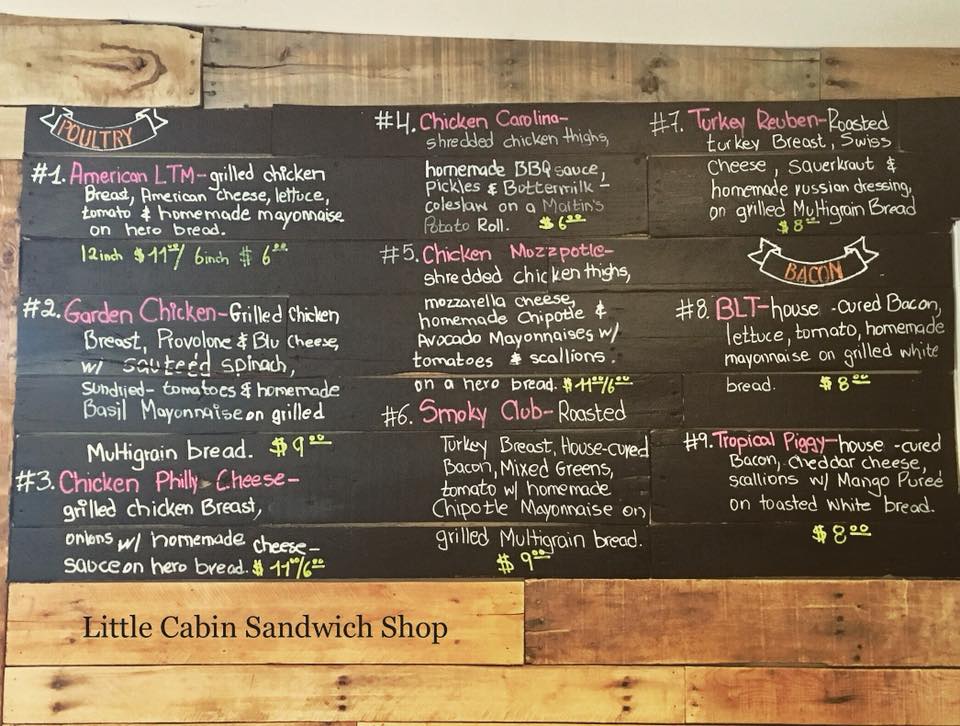 POULTRY
#1. American LTM-grilled chicken
Breast, American cheese, lettuce,
tomato & homemade mayonnaise
on hero bread.
12inch $11.00/ 6inch $6.00
#2. Garden Chicken-Grilled Chicken
Breast, Provolone & Blu Cheese,
w/ sauteéd spinach,
sundried-tomatoes & homemade
Basil Mayonnaise on grilled
Multigrain bread. $9.00
#3. Chicken Philly Cheese-
grilled chicken Breast,
onions w/ homemade cheese-
sauce on hero bread. $11.00/6.00
#4. Chicken Carolina-
shredded chicken thighs,
homemade BBQ sauce,
pickles & Buttermilk-
coleslaw on a Martin's
Potato Roll. $6.00
#5. Chicken Mozzpotle-
shredded chicken thighs,
mozzarella cheese,
homemade Chipotle &
Avocado Mayonnaises w/
tomatoes & scallions.
on a hero bread. $11.00/6.00
#6. Smoky Club-Roasted
Turkey Breast, House-cured
Bacon, Mixed Greens,
tomato w/ homemade
Chipotle Mayonnaise on
grilled Multigrain bread.
$9.00
#7. Turkey Reuben-Roasted
turkey Breast, Swiss
Cheese, Sauerkraut &
homemade russian dressing,
on grilled Multigrain Bread
$8.00
BACON
#8. BLT-house -cured Bacon,
lettuce, tomato, homemade
mayonnaise on grilled white
bread. $8.00
#9. Tropical Piggy-house -cured
Bacon, Cheddar cheese,
scallions w/ Mango Pureé
on toasted white bread.
$8.00
Little Cabin Sandwich Shop